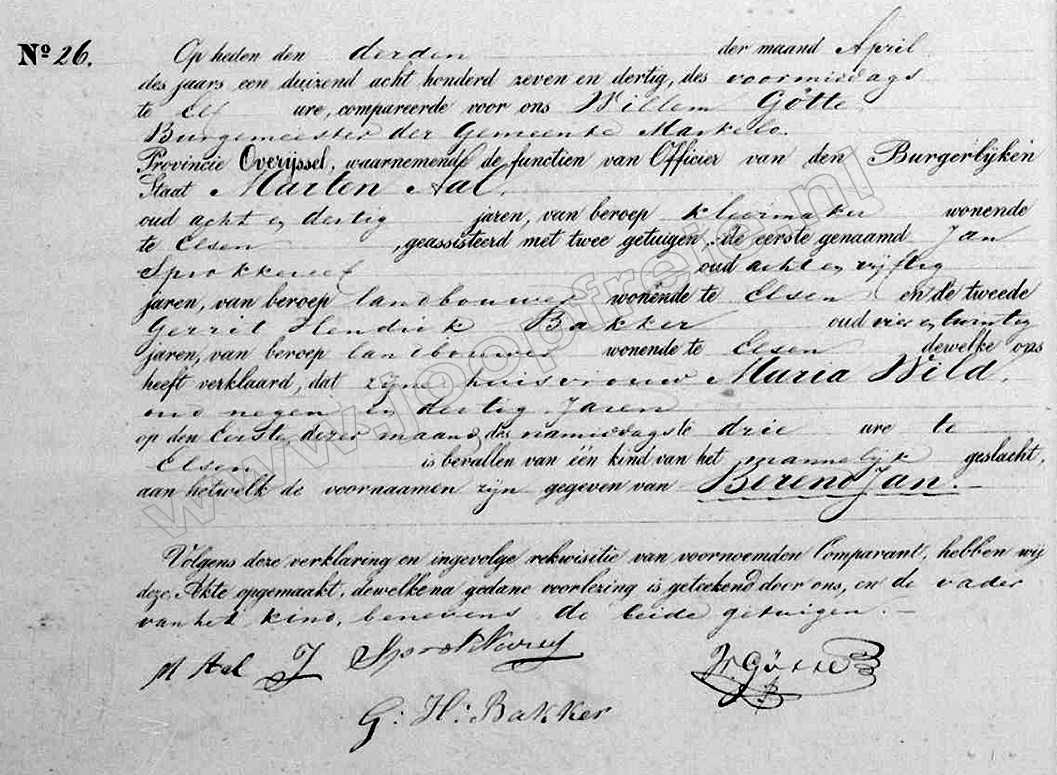 Nº 26.
Op heden den derden der maand April
des jaars een duizend acht honderd zeven en dertig, des voormiddags
te Elf ure, compareerde voor ons Willem Götte
Burgemeester der Gemeente Markelo.
Provincie Overijssel, waarnemende de functien van Officier van den Burgerlijken
Staat Marten Aal,
oud acht en dertig jaren, van beroep kleermaker wonende
te Elsen, geassisteerd met twee getuigen, de eerste genaamd Jan
oud acht en vijftig
jaren, van beroep landbouwer wonende te Elsen en de tweede
Gerrit Hendrik Bakker oud vier en twintig
jaren, van beroep landbouwer wonende te Elsen dewelke ons
heeft verklaard, dat zijne huisvrouw Maria Wild,
oud negen en dertig Jaren
op den Eersten dezer maand, des namiddags te drie ure te
Elsen is bevallen van één kind van het mannelijk geslacht,
aan hetwelk de voornaamen zijn gegeven van Berend Jan.
Volgens deze verklaring en ingevolge rekwisitie van voornoemden Comparant, hebben wij
deze Akte opgemaakt, dewelke na gedane voorlezing is geteekend door ons, en de vader
van het kind, benevens de beide getuigen.
M Aal J
W. Götte
G: H: Bakker
www.joopfrele.nl